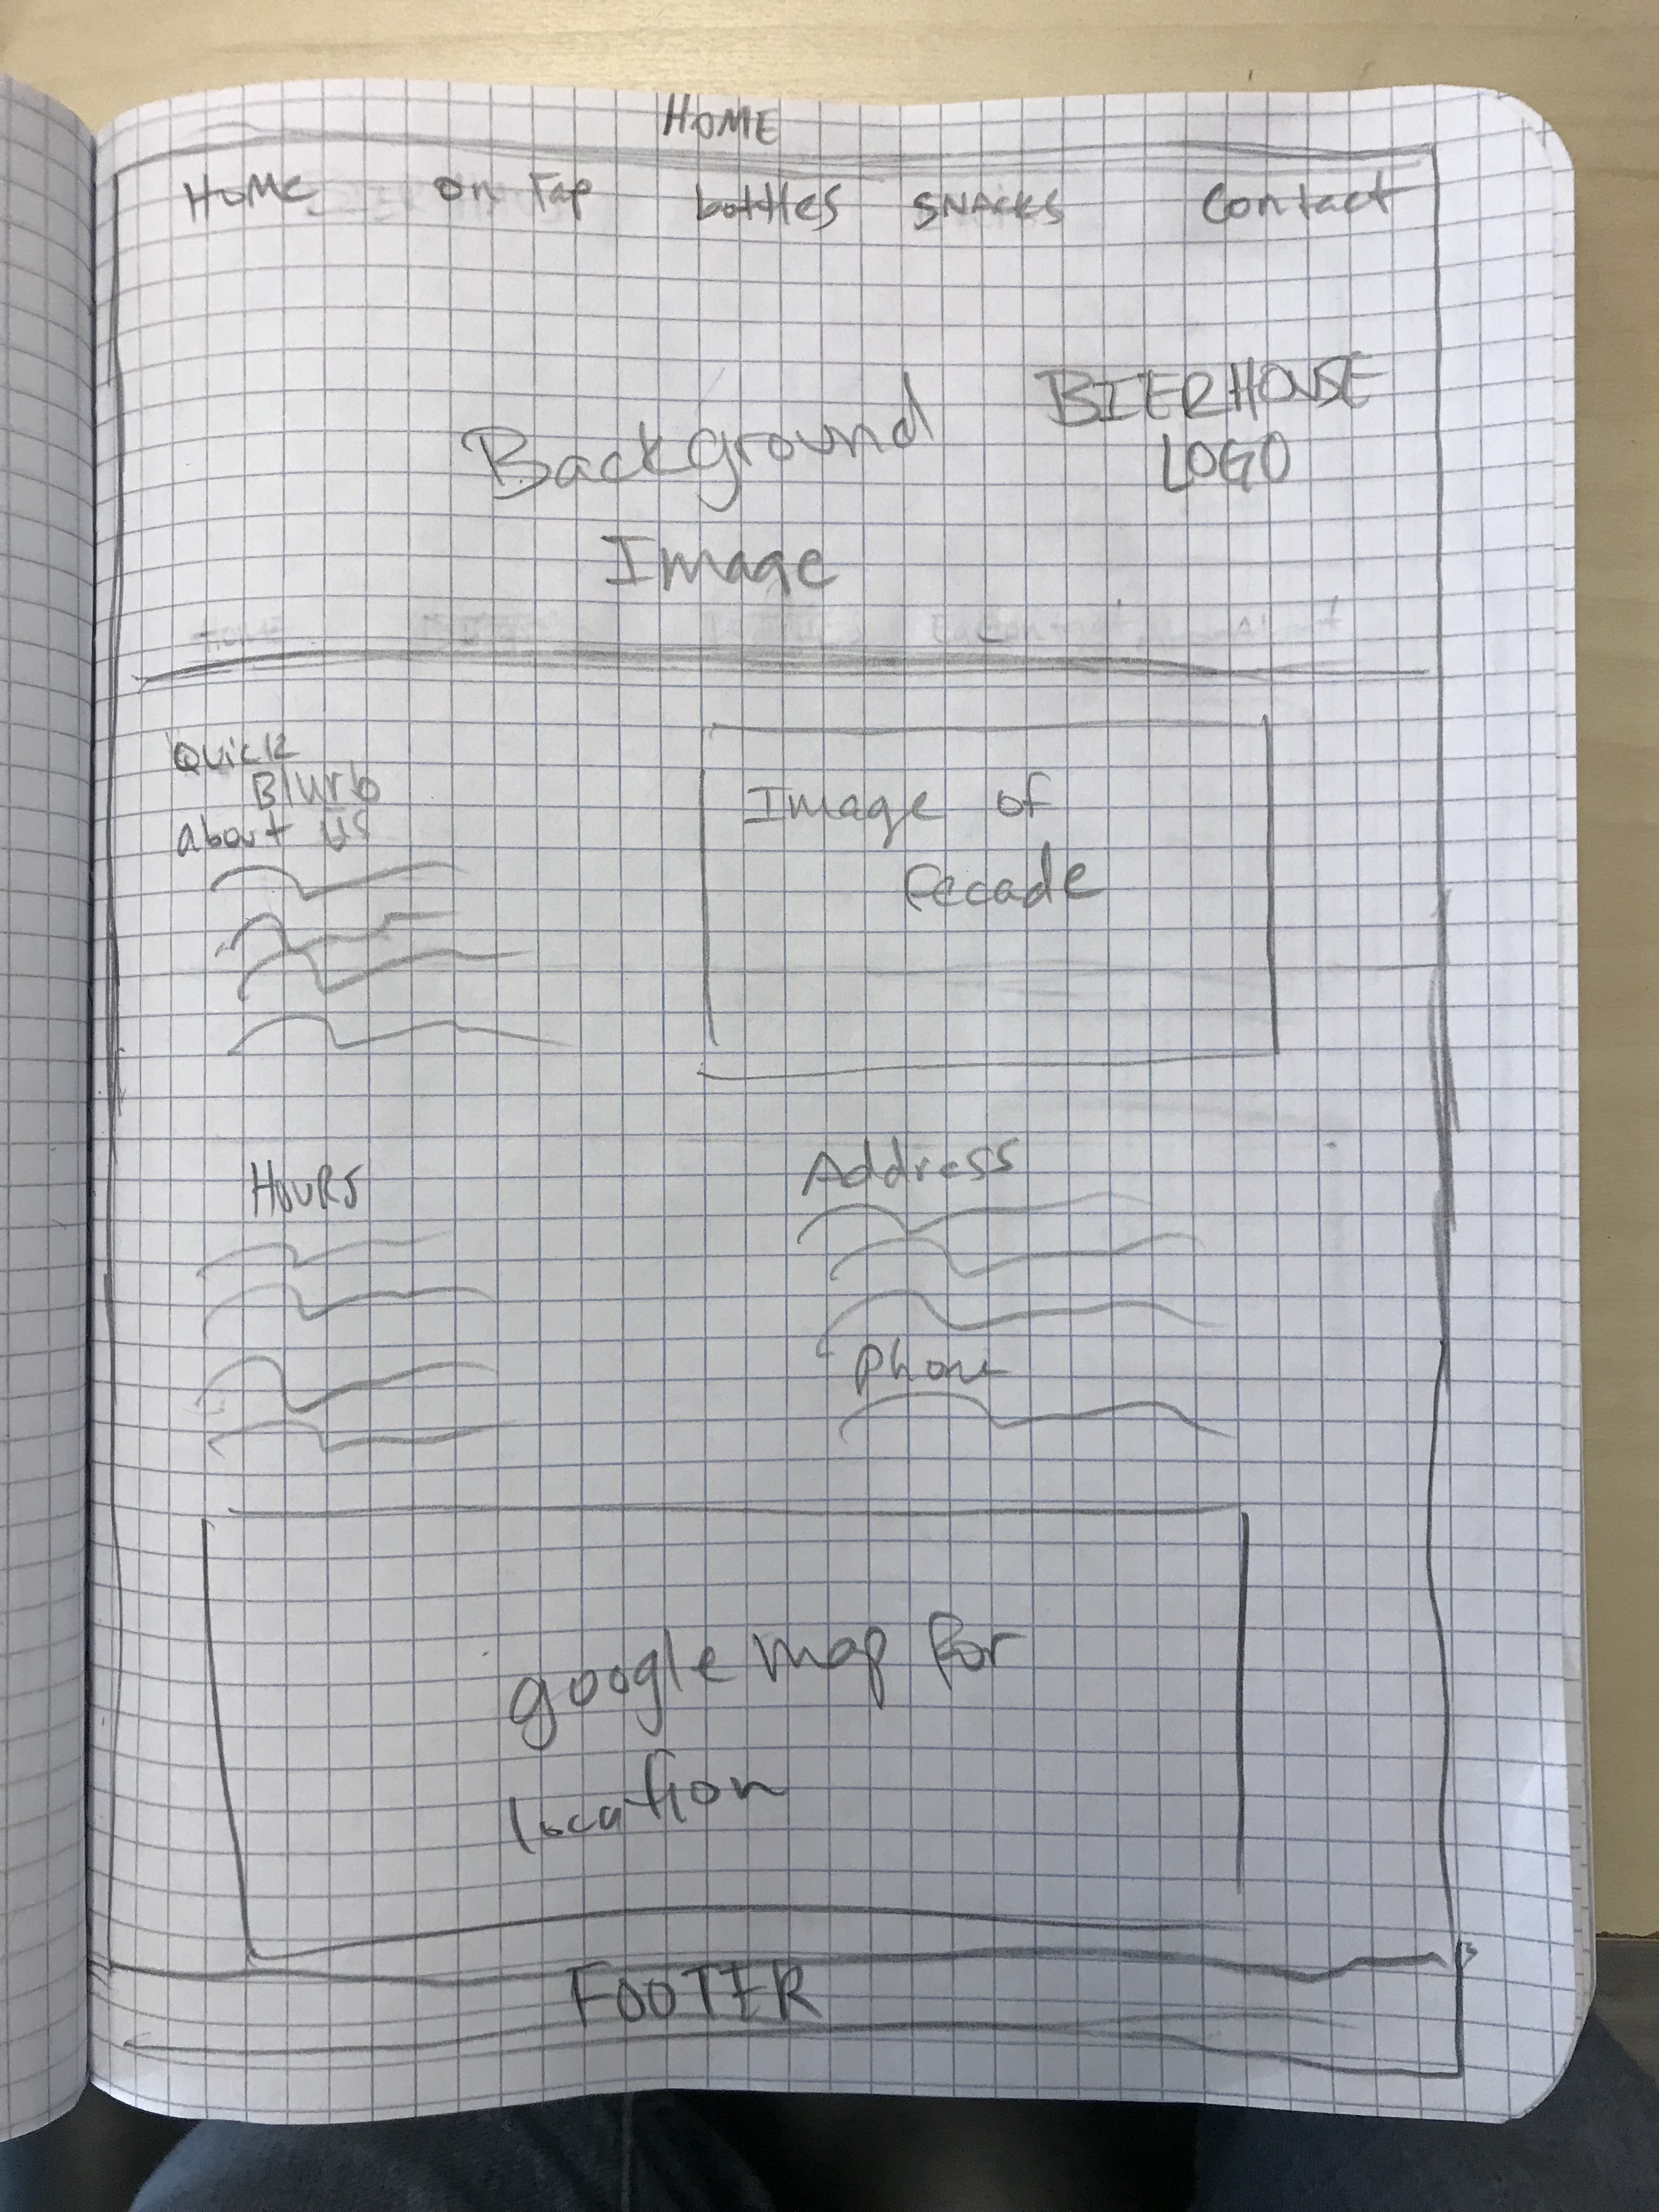 HOME
HOME on Tap bottles SNACKS Contact
BIERHOUSE
LOGO
Background
Image
Quick
Blurb
about us
Image of
fecade
Hours
Address
phone
google map for
location
FOOTER